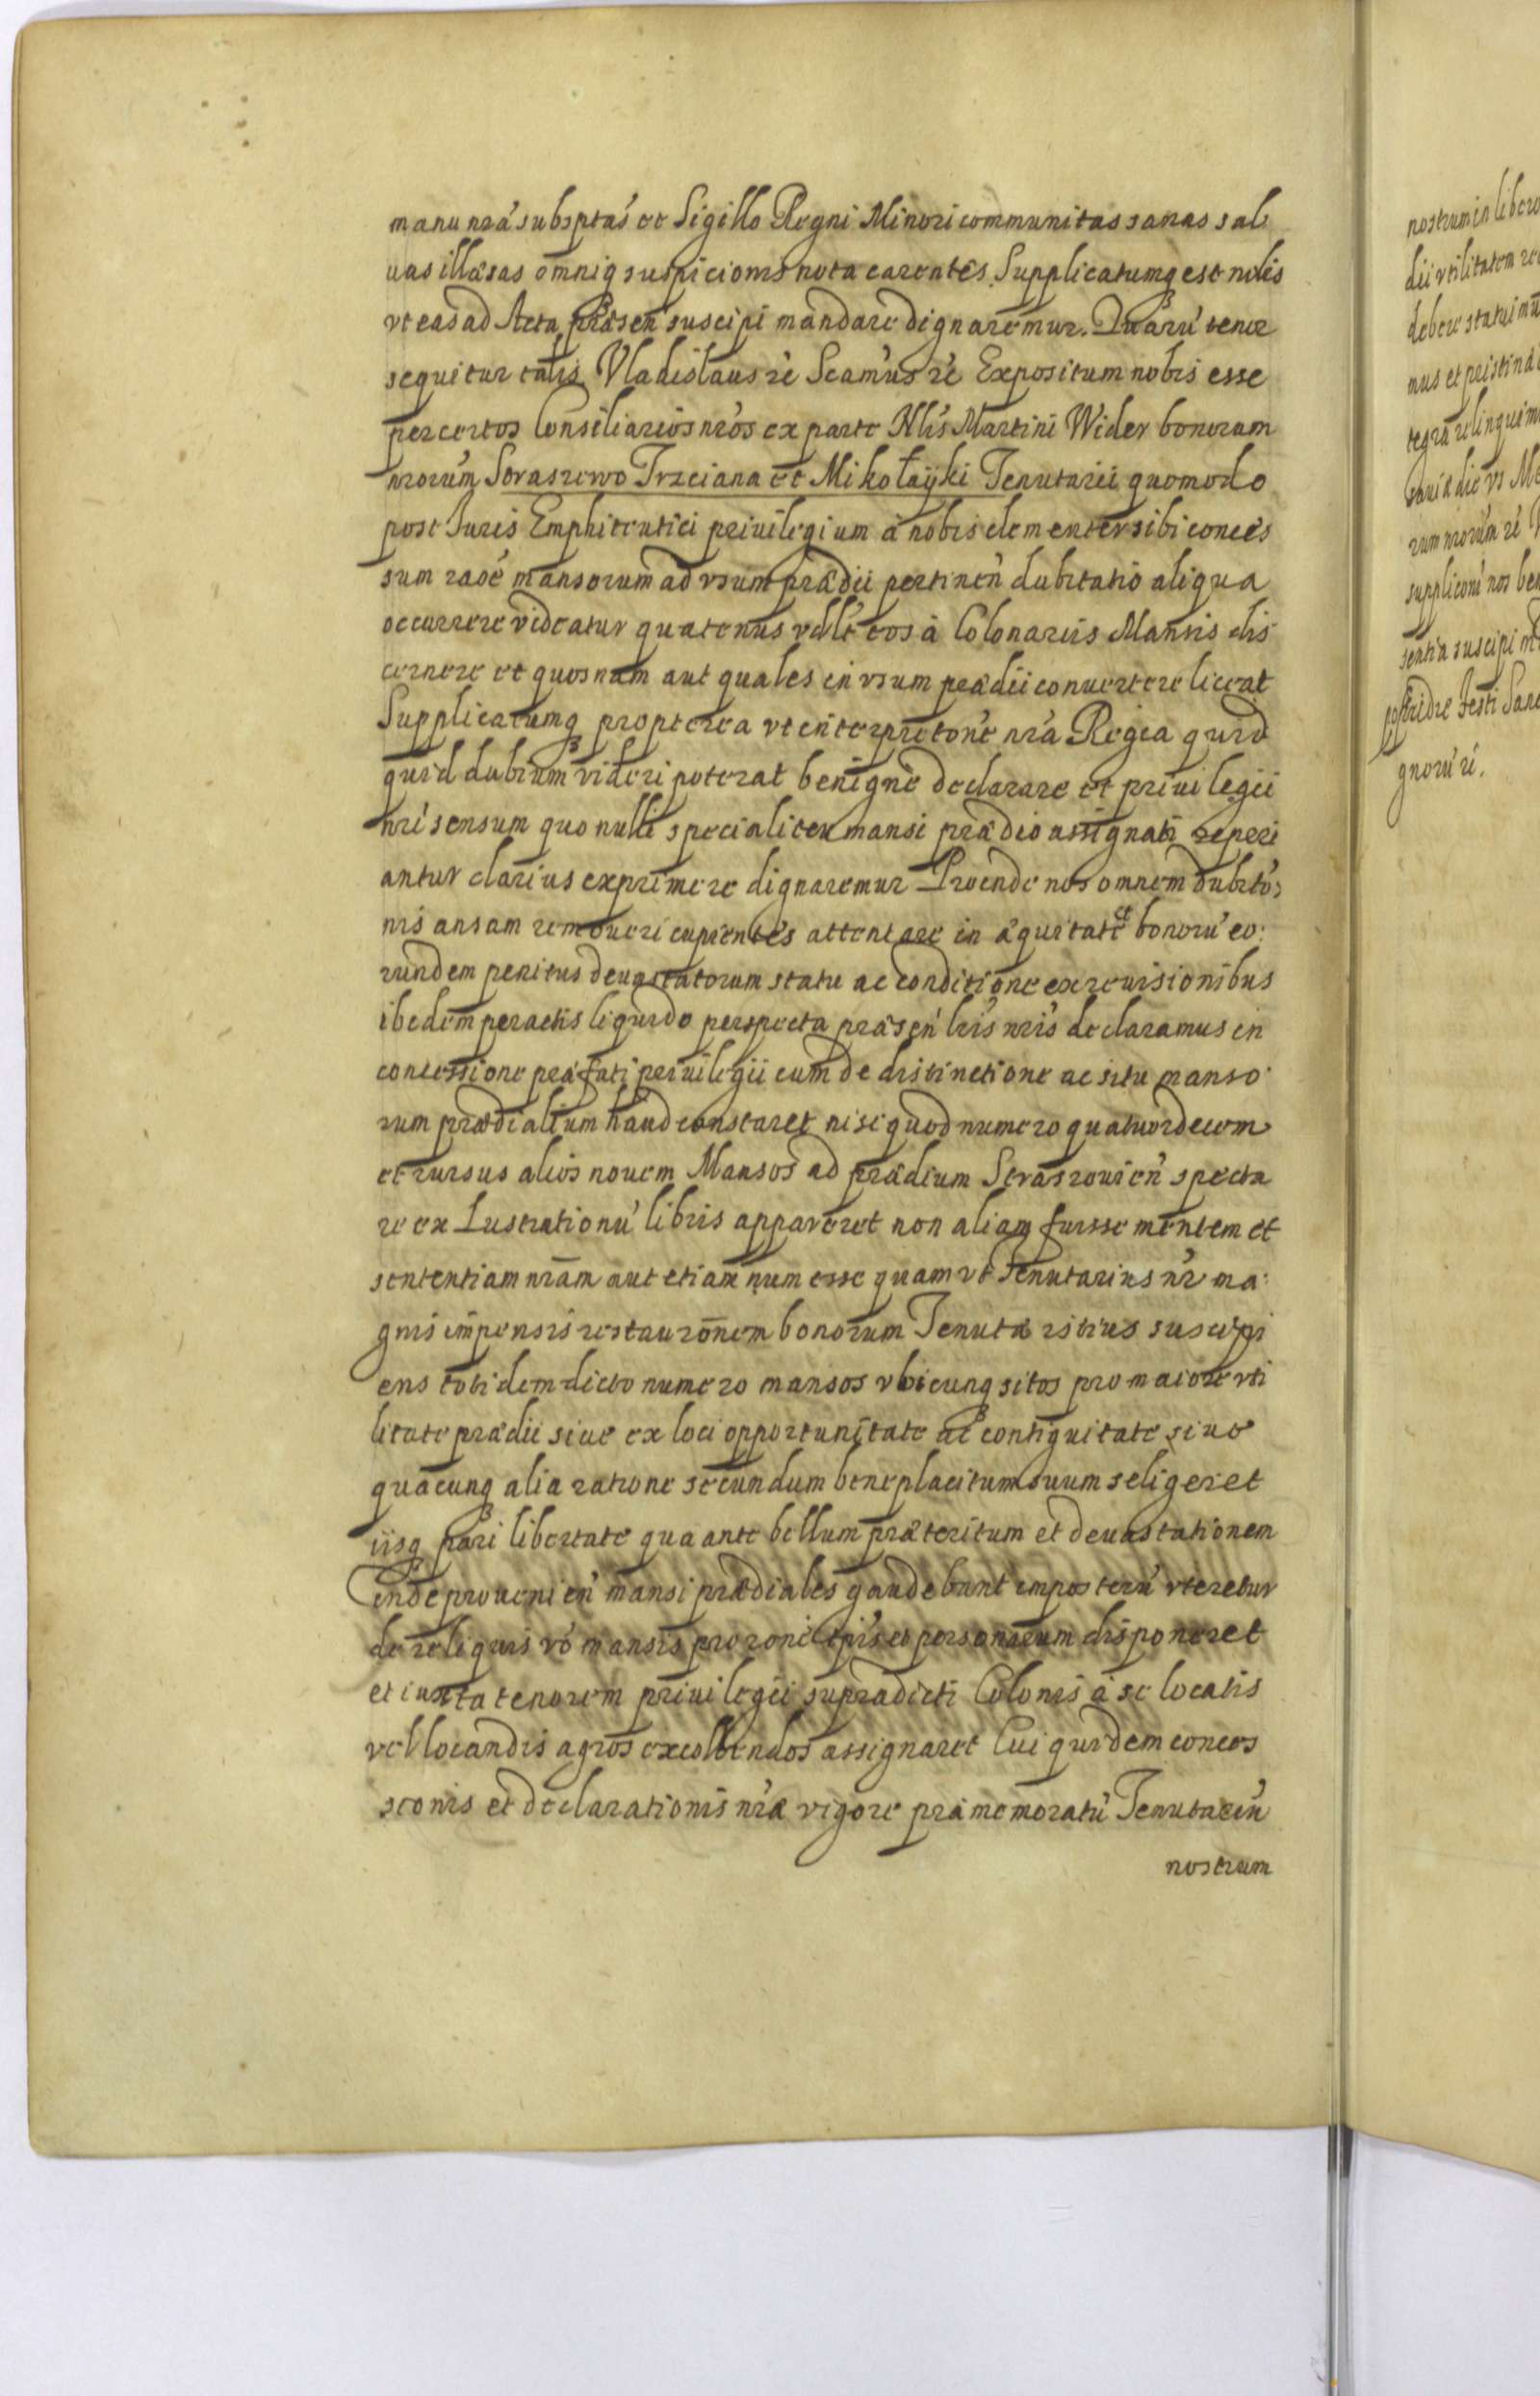 manu nrã subsptas et Sigillo Regni Minori communitas sanas sal
uas illæsas omniq suspicionis nota carentes. Supplicatumq est nobis
vt eas ad Acta præsen suscipi mandare dignaremur. Quarũ tenor
sequitur talis Vladislaus rê Scam̃us rê Expositum nobis esse
per certos Consiliarios nr̃os ex parte Nlis Martini Wider bonorum
nrorum Straszewo Trzciana et Mikołayki Tenutarii quomodo
post Juris Emphiteutici priuilegium à nobis clementer sibi conces
sum raõe mansorum ad vsum prædii pertinen̄ dubitatio aliqua
occurrere videatur quatenus vellet eos à Colonariis Mansis dis
cernere et quosnam aut quales in vsum prædii conuertere liceat
Supplicatumq propterea vt interpretõne nr̃a Regia quid
quid dubium videri poterat benignè declarare et priuilegii
nr̃i sensum quo nulli specialiter mansi prædio assignati reperi
antur clarius exprimere dignaremur Proinde nos omnem dubitõ:
nis ansam remoueri cupientes attentare in æquitate et bonorũ eo:
rundem penitus deuastatorum statu ac conditione ex reuisionibus
ibidem peractis liquido perspecta præsen̄ lris nr̃is declaramus in
concessione præfati priuilegii cum de distinctione ac situ manso
rum prædialium haud constaret nisi quod numero quatuordecim
et rursus alios nouem Mansos ad prædium Straszouien̄ specta
re ex Lustrationũ libris appareret non aliam fuisse mentem et
sententiam nr̃am aut etiam num esse quam vt Tenutarius nr̃ ma:
gnis impensis restaurõnem bonorum Tenutæ istius suscipi
ens totidem dicto numero mansos vbicunq sitos pro maiore vti
litate prædii siue ex loci opportunitate ac contiguitate siue
quacunq alia ratione secundum beneplacitum suum seligeret
iisq pari libertate qua ante bellum præteritum et deuastationem
inde prouenien̄ mansi prædiales gaudebant imposterũ vteretur
de reliquis vo mansis pro rone personarum disponeret
et iuxta tenorem priuilegii supradicti Colonis à se locatis
vel locandis agros excollendos assignaret Cui quidem conces
sionis et declarationis nr̃æ vigore præmemoratũ Tenutariũ
nostrum
nostrum in libero
dii vtilitatem
debere statuimu
mus et
tegra relinquim
rum nrorum rê
supplicani nos
sentia suscipi
postridie festi
gnorũ rê.